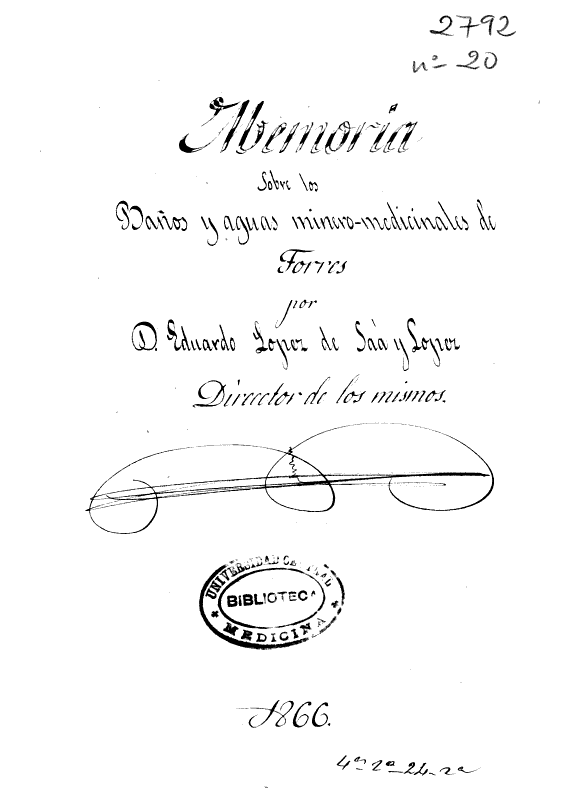 2792
nº 20
Memoria
Sobre los
Baños y aguas minero-medicinales de
Torres
por
D. Eduardo Lopez de Sáa y Lopez
Director de los mismos.
UNIVERSIDAD CENTRAL
BIBLIOTECA
MEDICINA
1866.
4ª 2ª 24-2ª